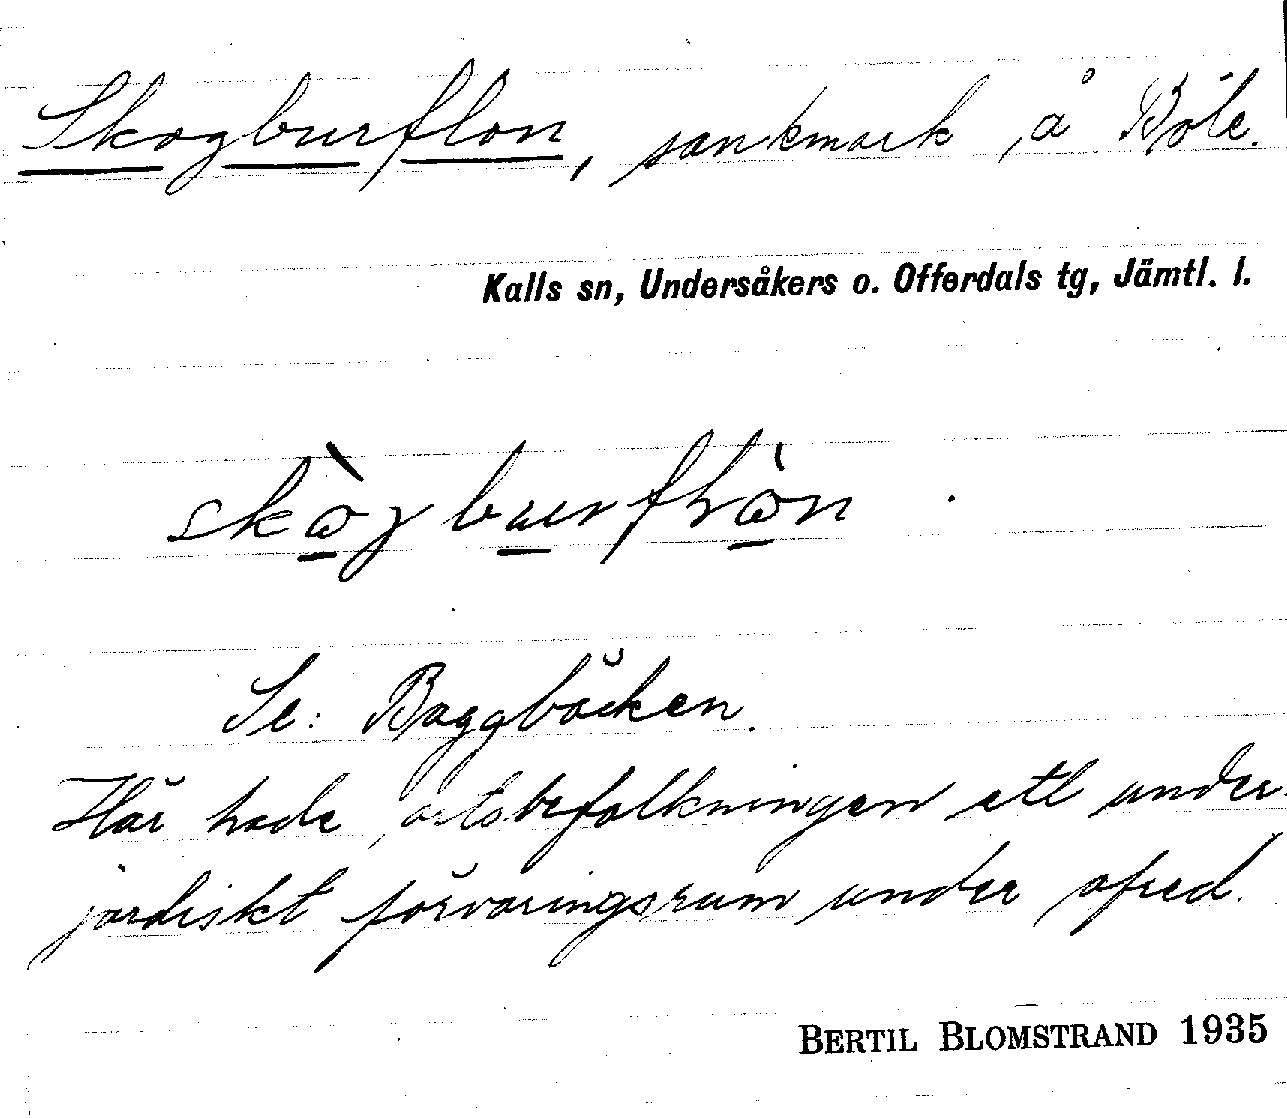 Skogburflon, sankmark å Böle.
Kalls sn, Undersåkers o. Offerdals tg, Jämtl. l.
Se: Baggböcken.
Här hade ortsbefolkningen ett under-
jordiskt förvaringsrum under ofred.
BERTIL BLOMSTRAND 1935